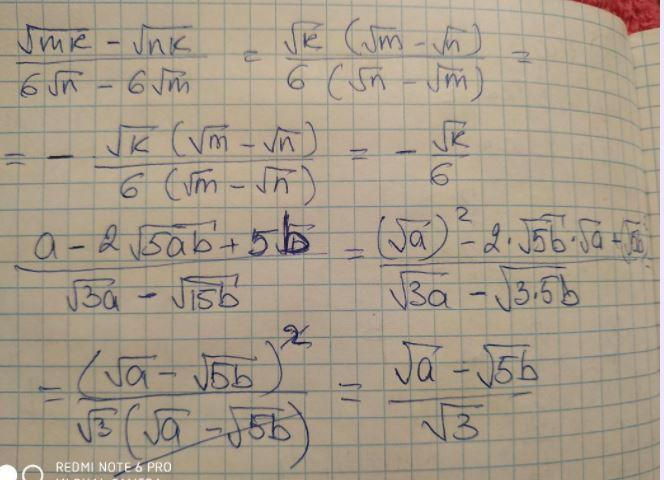 (√mk - √nk)/(6√n - 6√m) = √k (√m - √n)/6 (√n - √m) =
= - √k (√m - √n)/6 (√m - √n) = - √k/6
(a - 2√5ab + 5b)/(√3a - √15b) = ((√a)² - 2·√5b·√a + √5b)/(√3a - √3·5b)
= (√a - √5b)²/√3 (√a - √5b) = (√a - √5b)/√3
REDMI NOTE 6 PRO